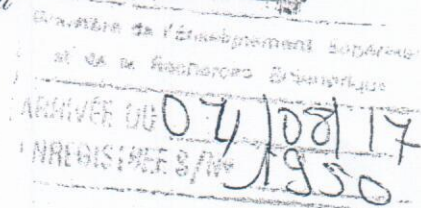 Ministère de l'Enseignement Supérieur
et de la Recherche Scientifique
ARRIVÉE DU 07/08/17
ENREGISTRÉE S/N° 1950